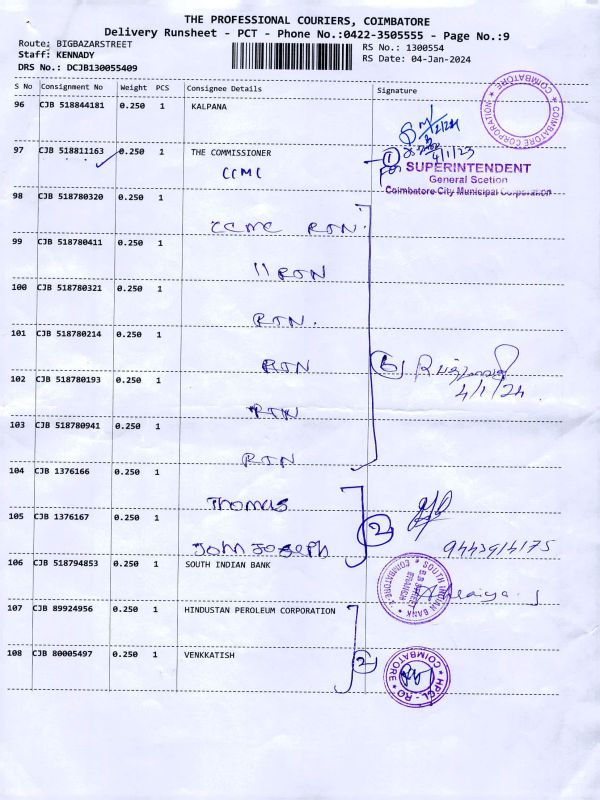 THE PROFESSIONAL COURIERS, COIMBATORE
Delivery Runsheet - PCT - Phone No.:0422-3505555 - Page No.:9
Route: BIGBAZARSTREET
RS No.: 1300554
Staff: KENNADY
RS Date: 04-Jan-2024
DRS No.: DCJB130055409
S No Consignment No Weight PCS Consignee Details Signature
96 CJB 518844181 0.250 1 KALPANA
97 CJB 518811163 0.250 1 THE COMMISSIONER
CCMC
1
4/1/23
For SUPERINTENDENT
General Scetion
Coimbatore City Municipal Corporation
COIMBATORE CORPORATION
COIMBATORE
98 CJB 518780320 0.250 1
CCMC RTN.
99 CJB 518780411 0.250 1
11 RTN
100 CJB 518780321 0.250 1
RTN.
101 CJB 518780214 0.250 1
RTN
6
4/1/24
102 CJB 518780193 0.250 1
RTN
103 CJB 518780941 0.250 1
RTN
104 CJB 1376166 0.250 1
Thomas
105 CJB 1376167 0.250 1
2
John Joseph
106 CJB 518794853 0.250 1 SOUTH INDIAN BANK
SOUTH INDIAN BANK
BRANCH
COIMBATORE
107 CJB 89924956 0.250 1 HINDUSTAN PEROLEUM CORPORATION
108 CJB 80005497 0.250 1 VENKKATISH
2
COIMBATORE
HPCL - RO